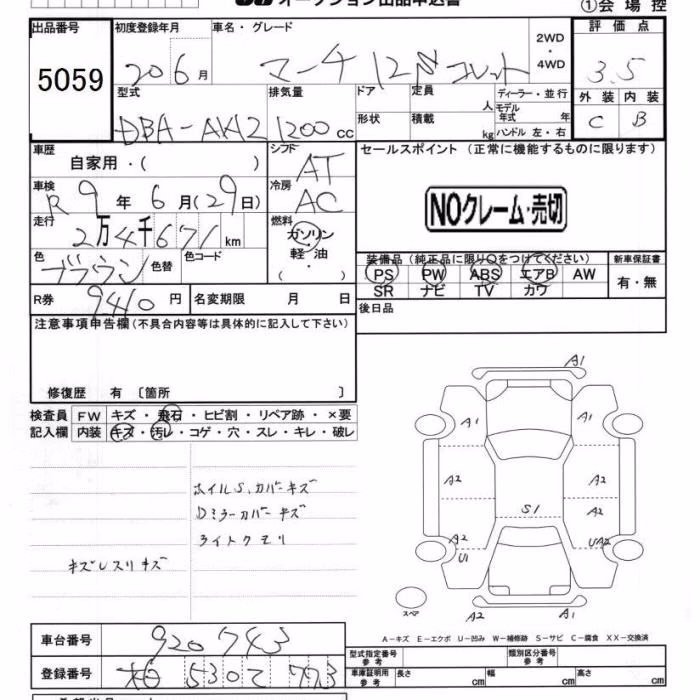 オークション出品申込書
①会 場 控
出品番号
5059
初度登録年月
20 6月
車名・グレード
マーチ 12N コレット
2WD
・
4WD
評価点
3.5
外装 内装
C B
型式
DBA-AK12
排気量
1200cc
ドア
形状
定員
人
積載
kg
ディーラー・並行
モデル年式 年
ハンドル 左・右
車歴
自家用・( )
シフト
AT
セールスポイント (正常に機能するものに限ります)
車検
R9年6月(29日)
冷房
AC
NOクレーム・売切
走行
2万4千671km
燃料
ガソリン
・
軽油
・
色
ブラウン
色替
色コード
装備品 (純正品に限り○をつけてください)
新車保証書
PS PW ABS エアB AW
SR ナビ TV カワ
有・無
R券
9410円
名変期限 月 日
後日品
注意事項申告欄(不具合内容等は具体的に記入して下さい)
修復歴 有 〔箇所 〕
検査員 FW キズ・飛石・ヒビ割・リペア跡・×要
記入欄 内装 キズ・汚レ・コゲ・穴・スレ・キレ・破レ
ホイルS,カバーキズ
Dミラーカバーキズ
ライトクモリ
キズレスリキズ
A1
A1 A1
A2 A2
S1 A2
A2 U1 UA2
スペア A2 A2
A-キズ E-エクボ U-凹み W-補修跡 S-サビ C-腐食 XX-交換済
車台番号
920743
登録番号
530 773
型式指定番号
参考
類別区分番号
参考
車庫証明用
参考
長さ cm 幅 cm 高さ cm